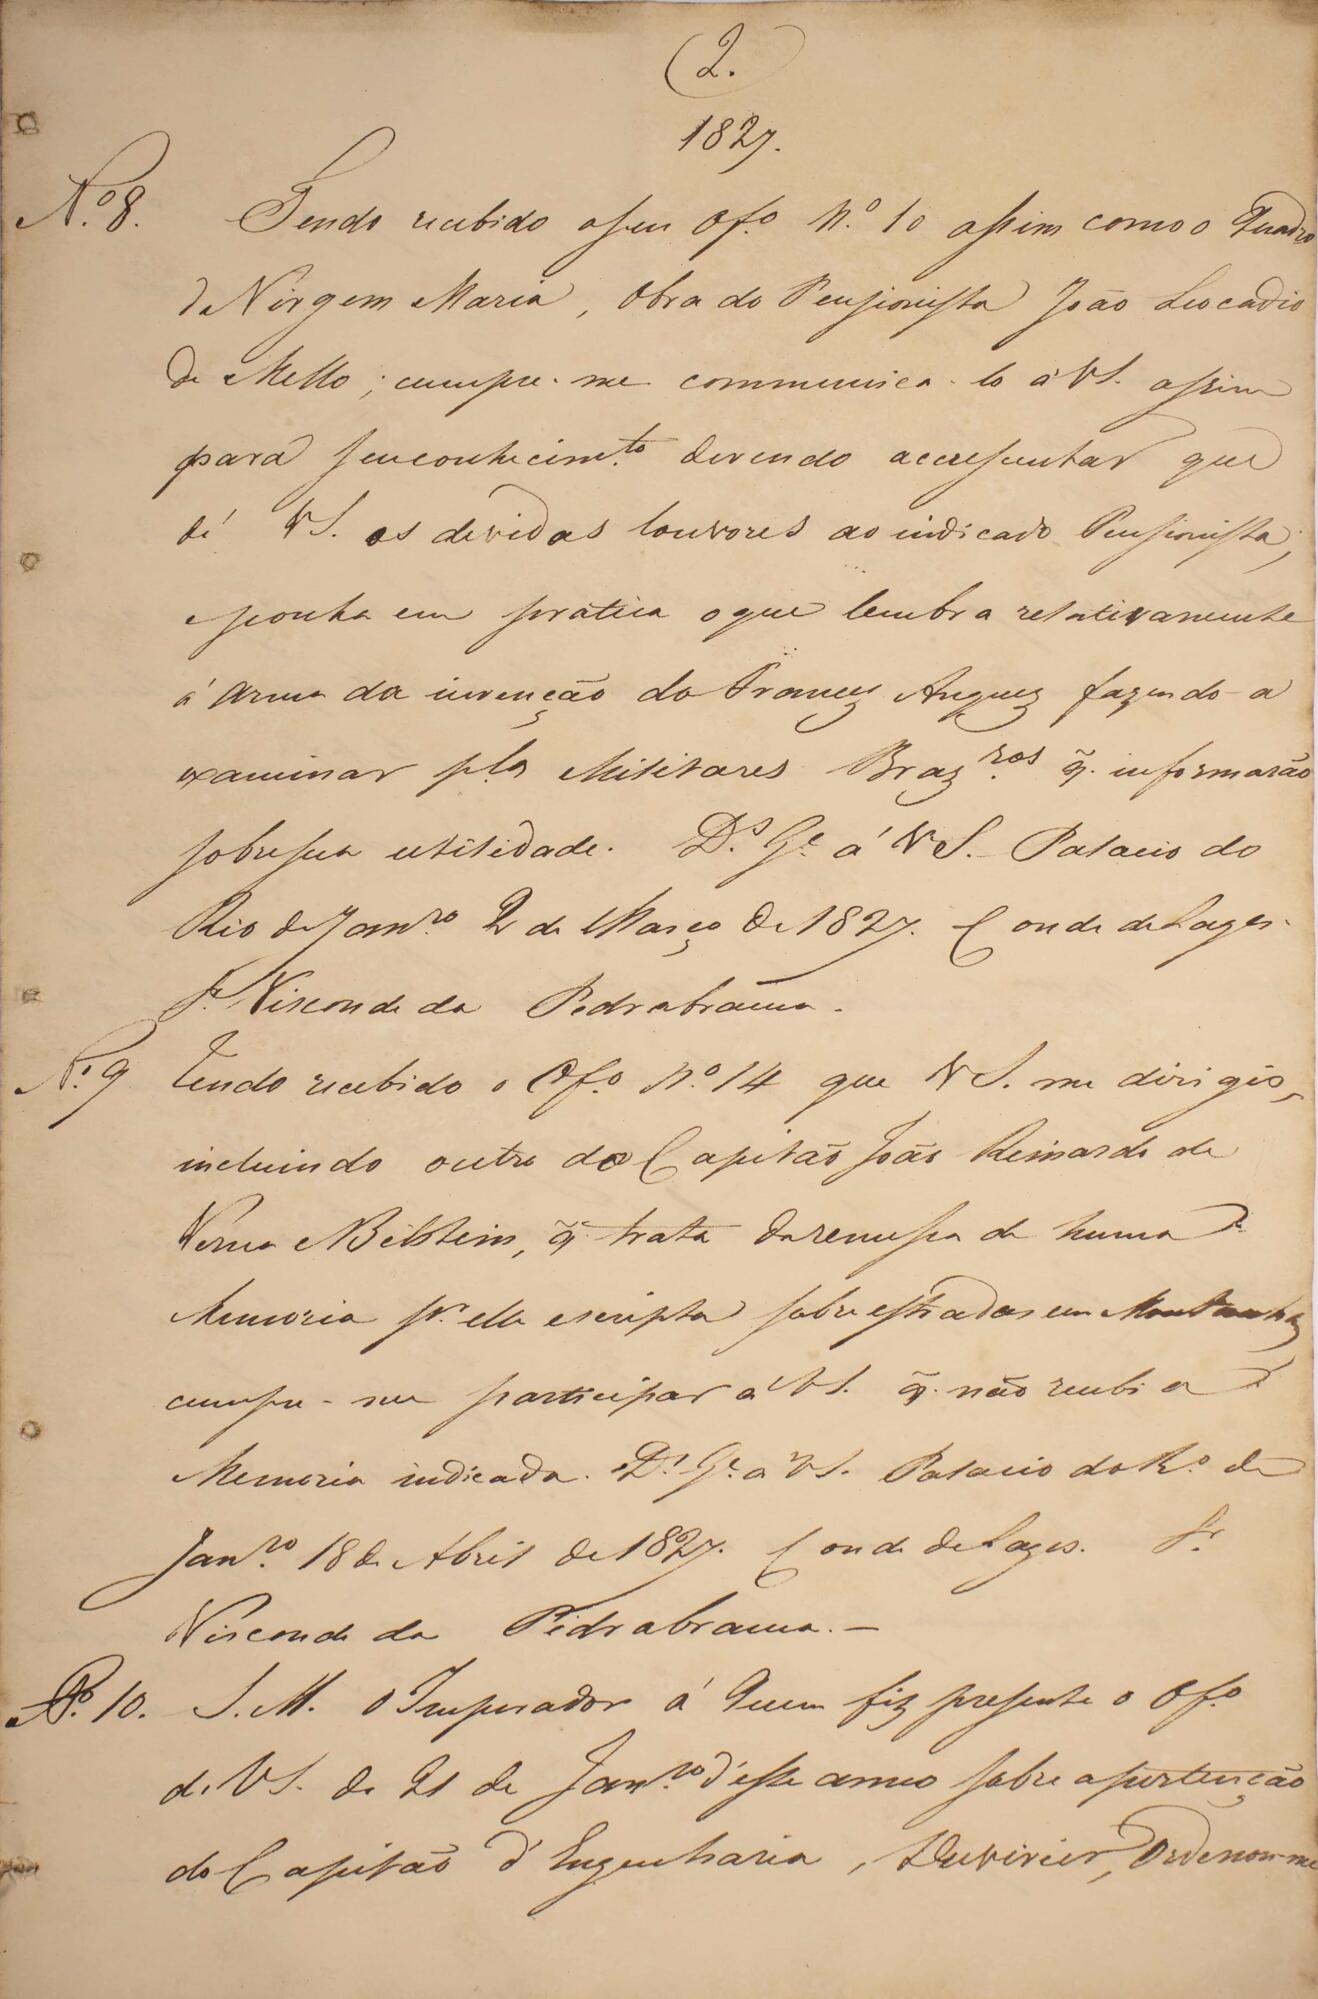 2.
1827.
Nº 8. Tendo recebido o seu Ofº Nº 10 assim como o Quadro
da Virgem Maria, Obra do Pensionista João Leocadio
de Mello; cumpre-me communica-lo á VS. assim
para seu conhecimto devendo accrescentar que
dê VS. os devidos louvores ao indicado Pensionista,
e ponha em prática o que lembra relativamente
á Arma da invenção do Francez fazendo-a
examinar plos Militares Brazros q̃. informarão
sobre sua utilidade. Ds. Ge. á VS. Palacio do
Rio de Janro. 2 de Março de 1827. Conde de Lages.
Sr. Visconde da Pedrabranca.
Nº 9 Tendo recebido o Ofº Nº 14 que VS. me dirigio,
incluindo outro do Capitão João Reinardo de
Verna e Bilstein, q̃ trata da remessa de huma
Memoria pr. elle escripta sobre estradas em Montanhas
cumpre-me participar a VS. q̃. não recebi a
Memoria indicada. Ds. Ge. a VS. Palacio do Rº de
Janro. 18 de Abril de 1827. Conde de Lages. Sr.
Visconde da Pedrabranca. —
Nº. 10. S. M. O Imperador á Quem fiz presente o Ofº
de VS. de 21 de Janro d'este anno sobre a pertenção
do Capitão d'Engenharia, Duvivier, Ordenou-me